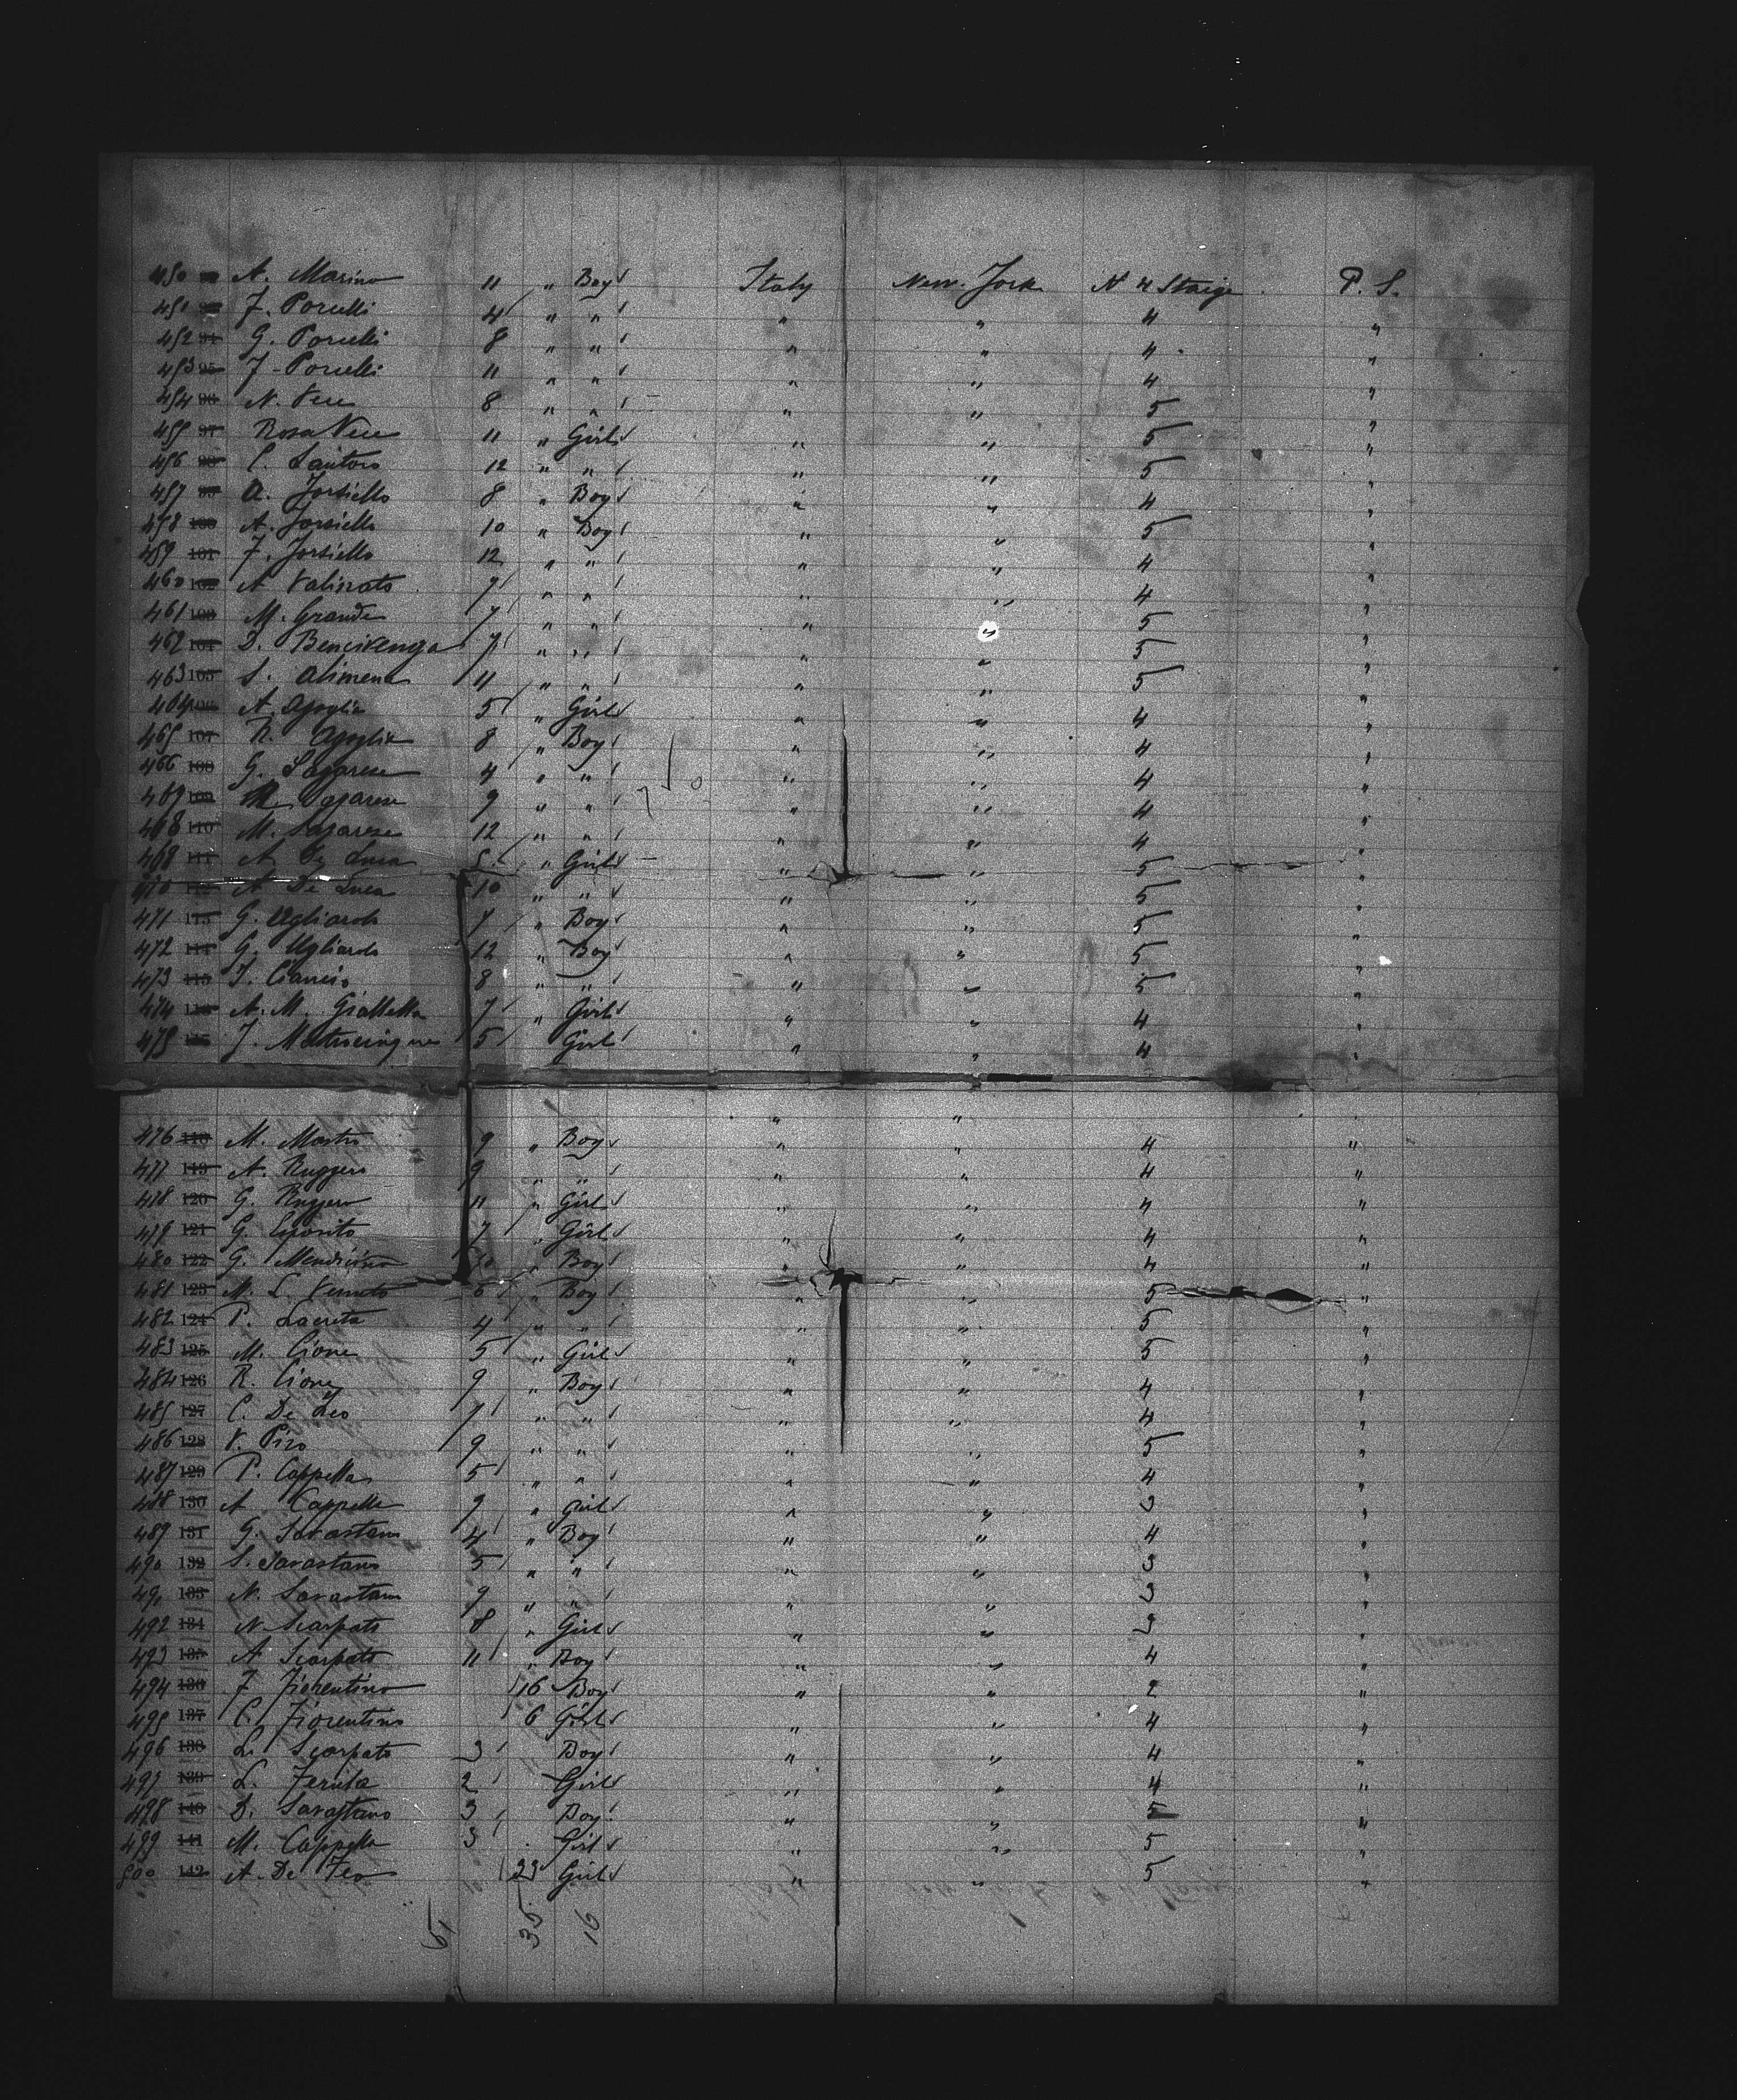 450 A. Marino 11 " Boy Italy New. York N 4 Staige P. S.
451 F. Porcelli 4 " " " " 4 "
452 94 G. Porcelli 8 " " " " 4 "
453 95 F. Porcelli 11 " " " " 4 "
454 96 N. 8 " " " " 5 "
455 97 Rosa 11 " Girl " " 5 "
456 98 C. Santoro 12 " " " " 5 "
457 99 A. 8 " Boy " " 4 "
458 100 A. 10 " Boy " " 5 "
459 101 F. 12 " " " " 4 "
460 102 A 7 " " " " 4 "
461 103 M. Grande 7 " " " " 5 "
462 104 D. Bencivenga 7 " " " " 5 "
463 105 S. Alimena 11 " " " " 5 "
464 106 A. Agoglia 5 " Girl " " 4 "
465 107 R. Agoglia 8 " Boy " " 4 "
466 108 G. Sagarese 4 " " " " 4 "
467 109 Sagarese 9 " " " " 4 "
468 110 M. Sagarese 12 " " " " 4 "
468 111 A De Luca 5 " Girl " " 5 "
470 112 A De Luca 10 " " " " 5 "
471 113 G. Ugliarolo 7 " Boy " " 5 "
472 114 G. Ugliarolo 12 " Boy " " 5 "
473 115 Ciancio 8 " " " " 5 "
474 116 A. M. Giallella 7 " Girl " " 4 "
475 F. Mastrocinque 5 Girl " " 4 "
" " "
476 118 M. Mastro 9 " Boy " " 4 "
477 119 A. Ruggero 9 " " " " 4 "
478 120 G. Ruggero 11 " Girl " " 4 "
479 121 G. Esposito 7 " Girl " " 4 "
480 122 G. Mendicino 10 " Boy " " 4 "
481 123 M. L. 6 " Boy " " 5 "
482 124 P. Lacreta 4 " " " " 5 "
483 125 M. Cione 5 " Girl " " 5 "
484 126 R. Cione 9 " Boy " " 4 "
485 127 C. De Leo 7 " " " " 4 "
486 128 V. Piro 9 " " " " 5 "
487 129 P. Cappella 5 " " " " 4 "
488 130 A Cappella 9 " Girl " " 3 "
489 131 G. Savastano 4 " Boy " " 4 "
490 132 S. Savastano 5 " " " " 3 "
491 133 N. Savastano 9 " " " " 3 "
492 134 N Scarpato 8 " Girl " " 3 "
493 135 A Scarpato 11 " Boy " " 4 "
494 136 F Fiorentino 16 Boy " " 2 "
495 137 C. Fiorentino 6 Girl " " 4 "
496 138 L. Scarpato 3 Boy " " 4 "
497 139 L. Feruta 2 Girl " " 4 "
498 140 D. Savastano 3 Boy " " 5 "
499 141 M. Cappella 3 Girl " " 5
500 142 A. De Feo 23 Girl " " 5 "
51 35 16